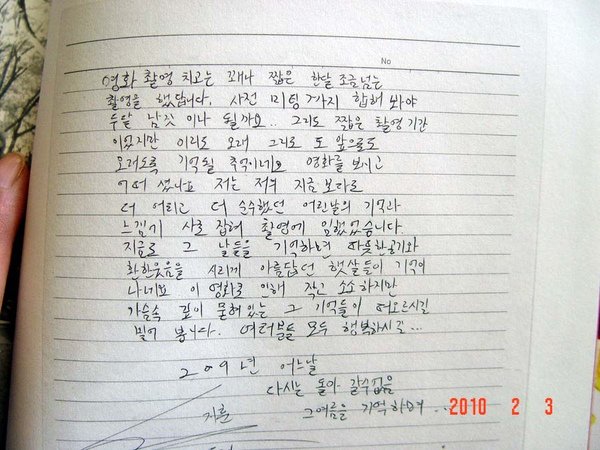 No
영화 촬영 치고는 꽤나 짧은 한달 조금 넘는
촬영을 했답니다. 사전 미팅까지 합해 봐야
두달 남짓 이나 될까요.. 그리도 짧은 촬영 기간
이었지만 이리도 오래 그리고 또 앞으로도
오래도록 기억될 추억이네요 영화를 보시고
어떠 셨나요 저는 저부 지금 보다로
더 어리고 더 순수했던 어린날의 기억과
느낌에 사로 잡혀 촬영에 임했었습니다.
지금도 그 날들을 기억하면 따뜻한 공기와
환한웃음을 시리게 아름답던 햇살들이 기억이
나네요 이 영화로 인해 작고 소소하지만
가슴속 깊이 묻혀있는 그 기억들이 떠오르시길
빌어 봅니다. 여러분들 모두 행복하시길...
2009년 어느날
다시는 돌아 갈수없음
지훈 그여름을 기억하며...
2010 2 3